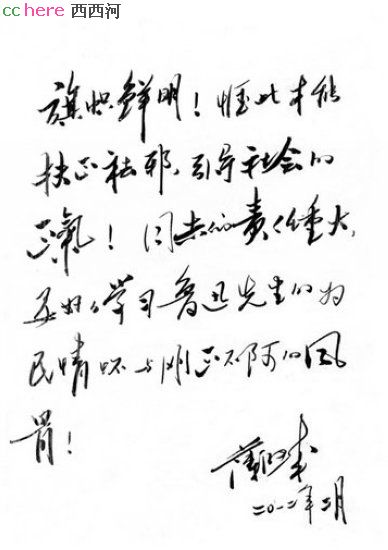 cchere 西西河
旗帜鲜明！惟此才能
扶正祛邪，引导社会的
正气！同志们责任重大，
要好好学习鲁迅先生的为
民情怀与刚正不阿的风
骨！
二〇一二年二月